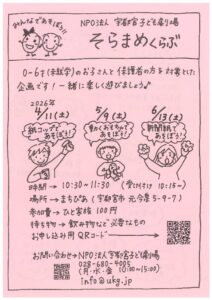 みんなであそぼう!!
NPO法人 宇都宮子ども劇場
そらまめくらぶ
0〜6才(未就学)のお子さんと保護者の方を対象とした
企画です! 一緒に楽しく遊びましょう♪
2026年
4/11(土)
5/9(土)
6/13(土)
紙コップであそぼう!
動くおもちゃであそぼう!
新聞紙であそぼう!
時間 → 10:30〜11:30 (受け付け 10:15〜)
場所 → まちぴあ (宇都宮市 元今泉5-9-7)
参加費 → ひと家族 100円
持ち物 → 飲み物など必要なもの
お申し込み用 QRコード
お問い合わせ→NPO法人 宇都宮子ども劇場
028-680-4005
(月・水・金 10:30〜15:00)
info@ukg.jp